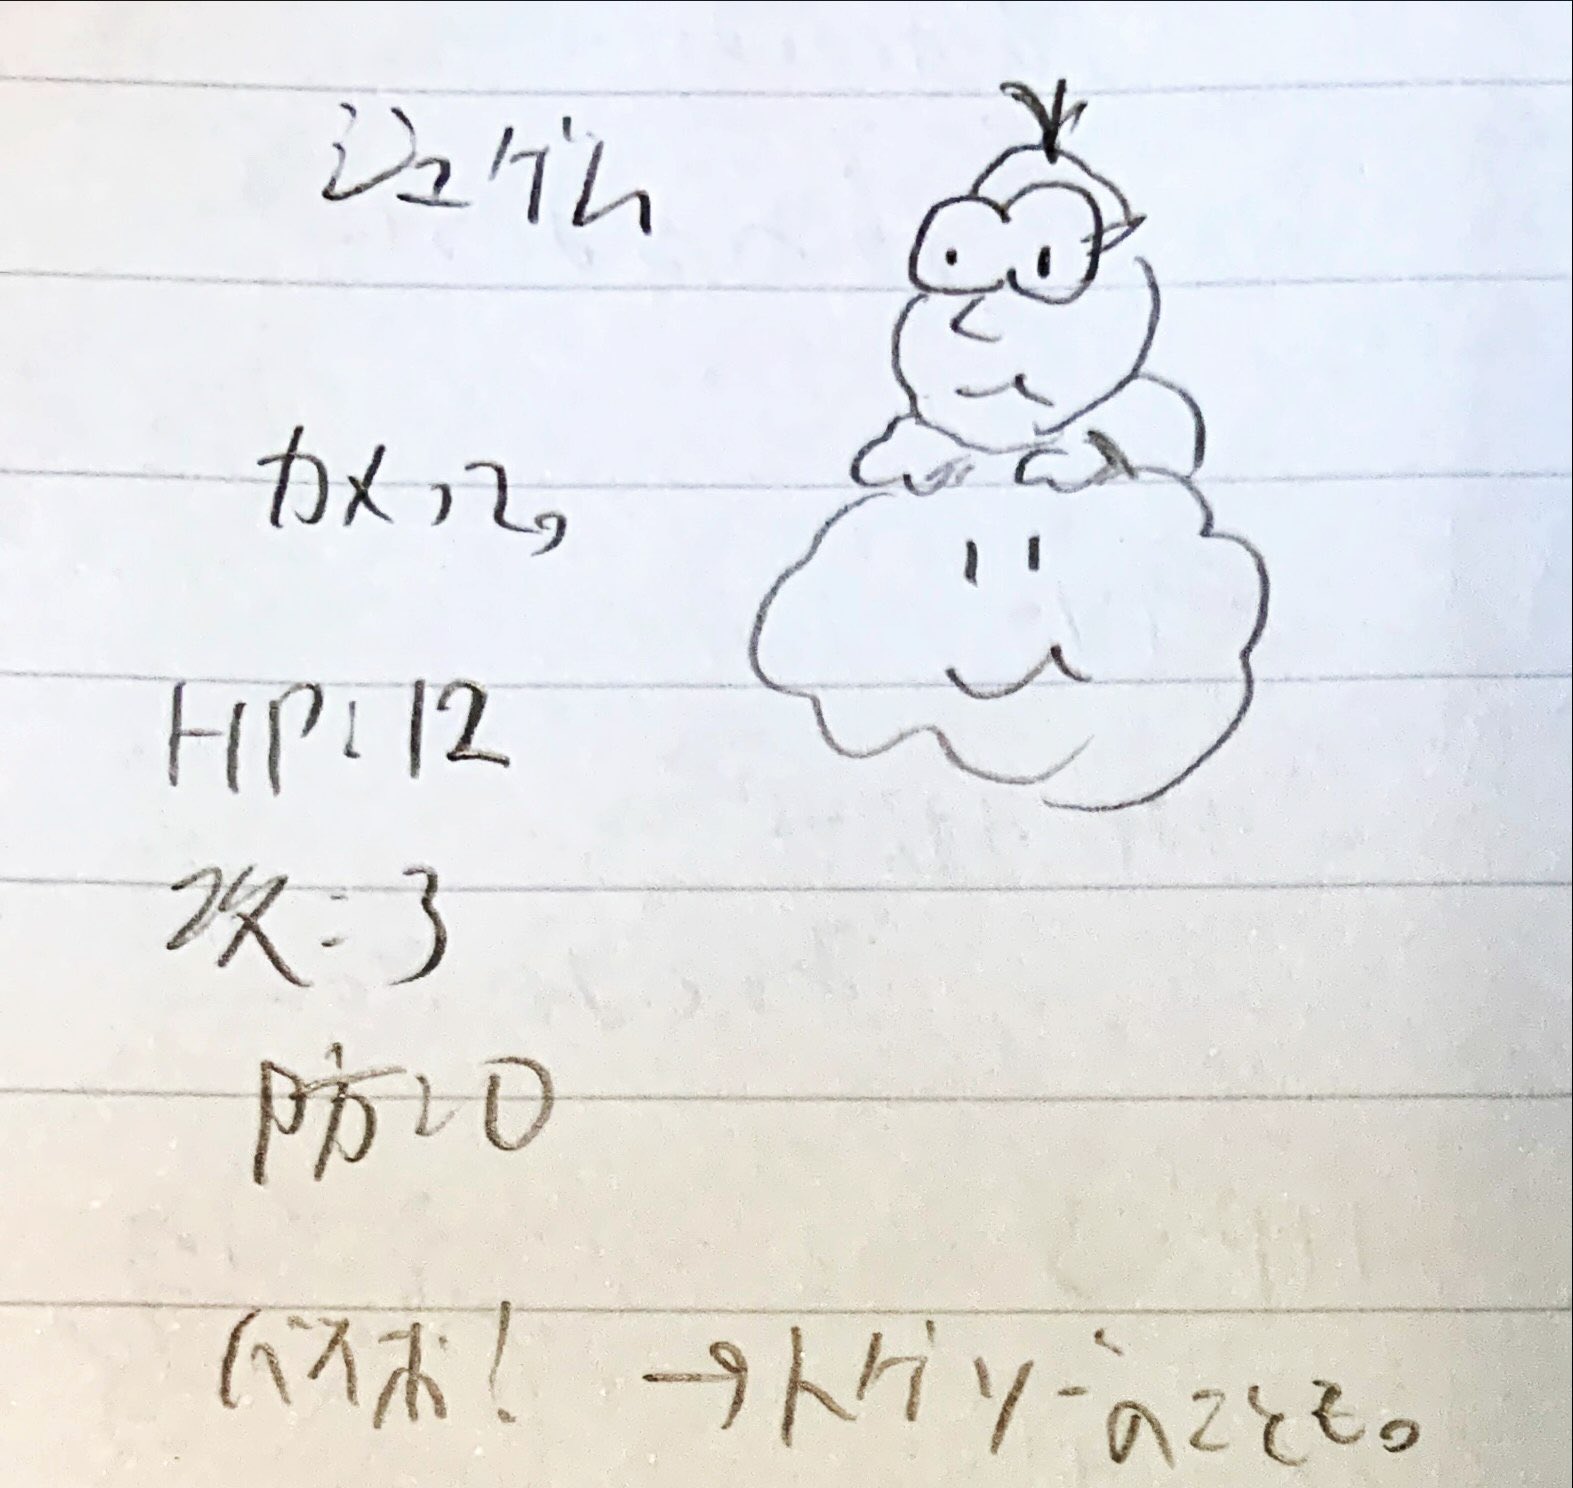 ジュゲム
カメ
HP:12
攻:3
防:0
パイポ! →トゲゾーのこども。